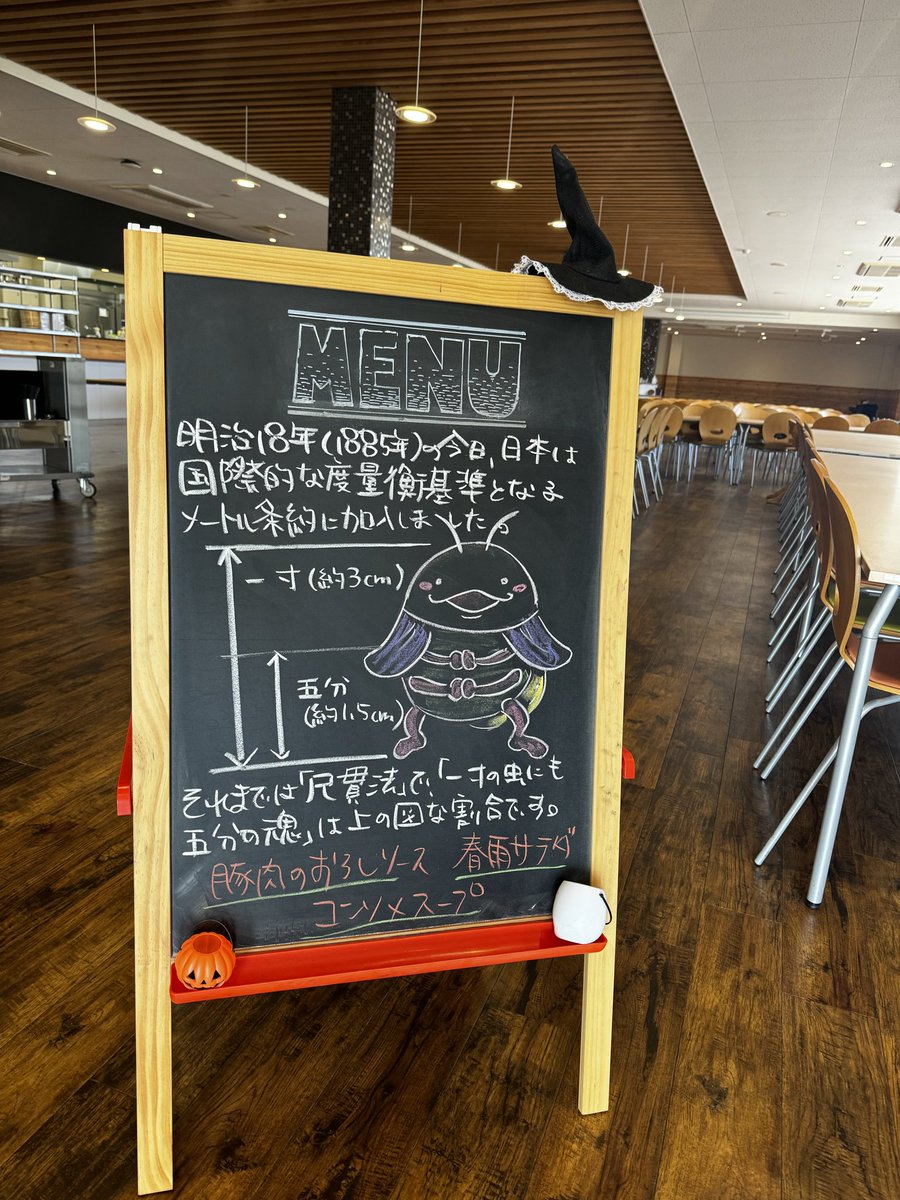 MENU
明治18年(1885年)の今日、日本は
国際的な度量衡基準となる
メートル条約に加入しました。
一寸(約3cm)
五分
(約1.5cm)
それまでは「尺貫法」で、「一寸の虫にも
五分の魂」は上の図な割合です。
豚肉のおろしソース 春雨サラダ
コンソメスープ